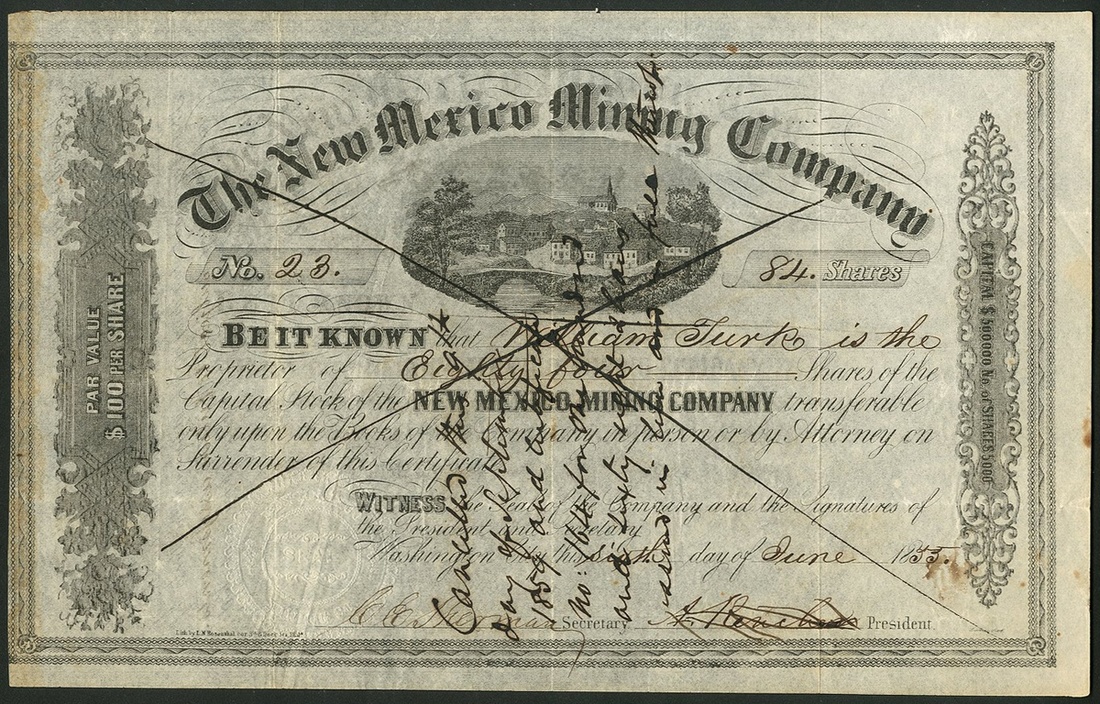 The New Mexico Mining Company
No. 23.
84. Shares
PAR VALUE
$100 PER SHARE
CAPITAL $500000 No. of SHARES 5000
BE IT KNOWN that William Turk is the
Proprietor of Eighty four Shares of the
Capital Stock of the NEW MEXICO MINING COMPANY transferable
only upon the Books of the Company in person or by Attorney on
Surrender of this Certificate
WITNESS the Seal of the Company and the Signatures of
the President and Secretary
Washington City this sixth day of June 1855.
Secretary
President
Lith. by L.N. Rosenthal
Cancelled this
day of September
1859 and Certificate
No: for one hundred
and sixty eight shares
issued in lieu